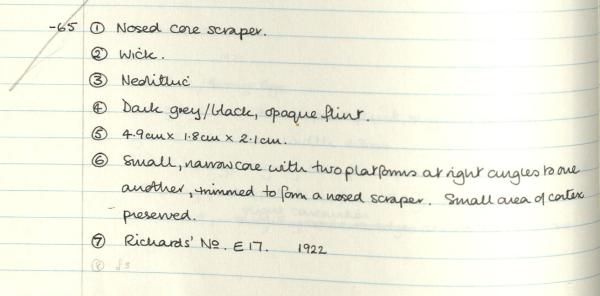 -65 ① Nosed core scraper.
② Wick.
③ Neolithic
④ Dark grey/black, opaque flint.
⑤ 4.9cm x 1.8cm x 2.1cm.
⑥ Small, narrow core with two platforms at right angles to one
another, trimmed to form a nosed scraper. Small area of cortex
preserved.
⑦ Richards' No. E17. 1922
⑧ £3